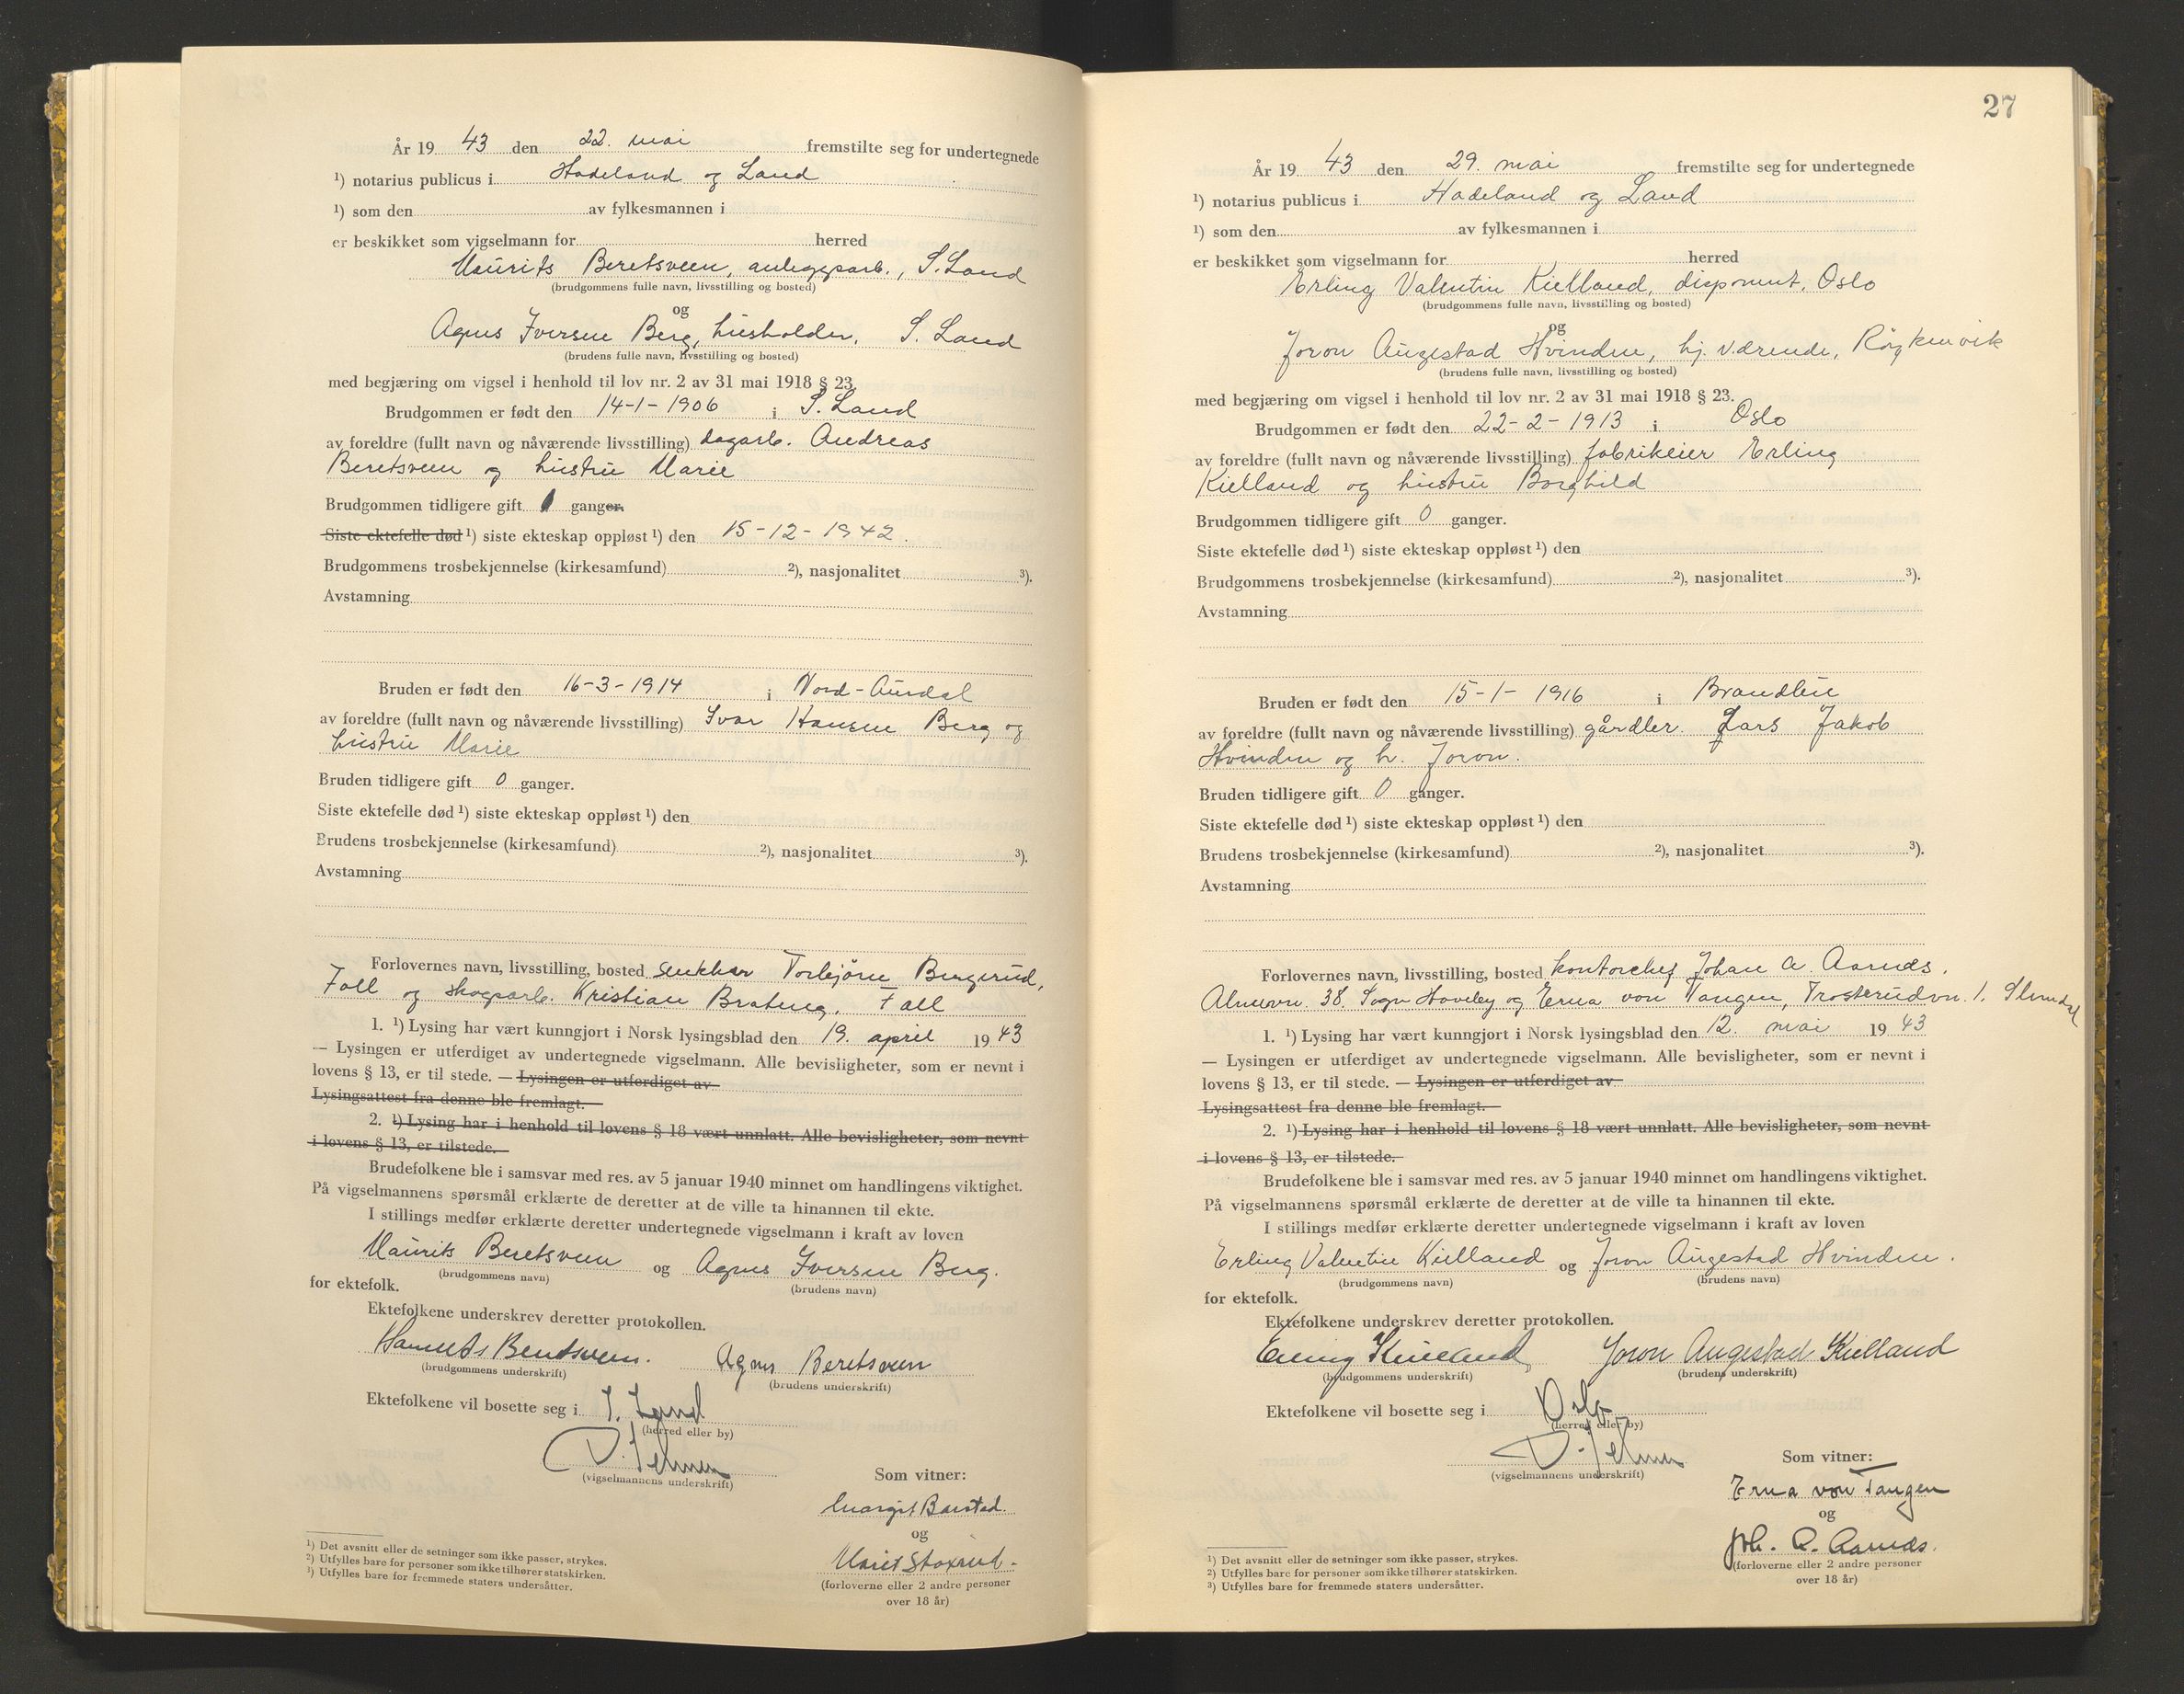 År 19 43 den 22. mai fremstilte seg for undertegnede
¹) notarius publicus i Hadeland og Land
¹) som den av fylkesmannen i
er beskikket som vigselmann for herred
Maurits Beretsveen, anleggsarb., S. Land
(brudgommens fulle navn, livsstilling og bosted)
og
Agnes Iversen Berg, husholder, S. Land
(brudens fulle navn, livsstilling og bosted)
med begjæring om vigsel i henhold til lov nr. 2 av 31 mai 1918 § 23.
Brudgommen er født den 14-1-1906 i S. Land
av foreldre (fullt navn og nåværende livsstilling) dagarb. Andreas
Beretsveen og hustru Marie
Brudgommen tidligere gift 1 ganger.
Siste ektefelle død ¹) siste ekteskap oppløst ¹) den 15-12-1942.
Brudgommens trosbekjennelse (kirkesamfund) ²), nasjonalitet ³).
Avstamning
Bruden er født den 16-3-1914 i Nord-Aurdal
av foreldre (fullt navn og nåværende livsstilling) Ivar Hansen Berg og
hustru Marie
Bruden tidligere gift 0 ganger.
Siste ektefelle død ¹) siste ekteskap oppløst ¹) den
Brudens trosbekjennelse (kirkesamfund) ²), nasjonalitet ³).
Avstamning
Forlovernes navn, livsstilling, bosted Torbjørn Bergerud,
Fall og skogsarb. Kristian Brateng, Fall
1. ¹) Lysing har vært kunngjort i Norsk lysingsblad den 19. april 1943
— Lysingen er utferdiget av undertegnede vigselmann. Alle bevisligheter, som er nevnt i
lovens § 13, er til stede. — Lysingen er utferdiget av
Lysingsattest fra denne ble fremlagt. —
2. ¹) Lysing har i henhold til lovens § 18 vært unnlatt. Alle bevisligheter, som nevnt
i lovens § 13, er tilstede. —
Brudefolkene ble i samsvar med res. av 5 januar 1940 minnet om handlingens viktighet.
På vigselmannens spørsmål erklærte de deretter at de ville ta hinannen til ekte.
I stillings medfør erklærte deretter undertegnede vigselmann i kraft av loven
Maurits Beretsveen og Agnes Iversen Berg.
(brudgommens navn) (brudens navn)
for ektefolk.
Ektefolkene underskrev deretter protokollen.
Beretsveen. Agnes Beretsveen
(brudgommens underskrift) (brudens underskrift)
Ektefolkene vil bosette seg i S. Land
(herred eller by)
(vigselmannens underskrift)
Som vitner:
Margit Barstad
og
Marit Staxrud
(forloverne eller 2 andre personer
over 18 år)
¹) Det avsnitt eller de setninger som ikke passer, strykes.
²) Utfylles bare for personer som ikke tilhører statskirken.
³) Utfylles bare for fremmede staters undersåtter.
27
År 19 43 den 29. mai fremstilte seg for undertegnede
¹) notarius publicus i Hadeland og Land
¹) som den av fylkesmannen i
er beskikket som vigselmann for herred
Erling Valentin Kielland, disponent, Oslo
(brudgommens fulle navn, livsstilling og bosted)
og
Joron Augestad Hvinden, hj. værende, Røykenvik
(brudens fulle navn, livsstilling og bosted)
med begjæring om vigsel i henhold til lov nr. 2 av 31 mai 1918 § 23.
Brudgommen er født den 22-2-1913 i Oslo
av foreldre (fullt navn og nåværende livsstilling) fabrikeier Erling
Kielland og hustru Borghild
Brudgommen tidligere gift 0 ganger.
Siste ektefelle død ¹) siste ekteskap oppløst ¹) den
Brudgommens trosbekjennelse (kirkesamfund) ²), nasjonalitet ³).
Avstamning
Bruden er født den 15-1-1916 i Brandbu
av foreldre (fullt navn og nåværende livsstilling) gårdbr. Lars Jakob
Hvinden og h. Joron.
Bruden tidligere gift 0 ganger.
Siste ektefelle død ¹) siste ekteskap oppløst ¹) den
Brudens trosbekjennelse (kirkesamfund) ²), nasjonalitet ³).
Avstamning
Forlovernes navn, livsstilling, bosted kontorchef Johan A. Aarnes,
Almevn. 38, Sogn Haveby og Erna von Tangen, Trosterudvn. 1, Slemdal
1. ¹) Lysing har vært kunngjort i Norsk lysingsblad den 12. mai 1943
— Lysingen er utferdiget av undertegnede vigselmann. Alle bevisligheter, som er nevnt i
lovens § 13, er til stede. — Lysingen er utferdiget av
Lysingsattest fra denne ble fremlagt. —
2. ¹) Lysing har i henhold til lovens § 18 vært unnlatt. Alle bevisligheter, som nevnt
i lovens § 13, er tilstede. —
Brudefolkene ble i samsvar med res. av 5 januar 1940 minnet om handlingens viktighet.
På vigselmannens spørsmål erklærte de deretter at de ville ta hinannen til ekte.
I stillings medfør erklærte deretter undertegnede vigselmann i kraft av loven
Erling Valentin Kielland og Joron Augestad Hvinden.
(brudgommens navn) (brudens navn)
for ektefolk.
Ektefolkene underskrev deretter protokollen.
Erling Kielland Joron Augestad Kielland
(brudgommens underskrift) (brudens underskrift)
Ektefolkene vil bosette seg i Oslo
(herred eller by)
(vigselmannens underskrift)
Som vitner:
Erna von Tangen
og
Joh. A. Aarnes.
(forloverne eller 2 andre personer
over 18 år)
¹) Det avsnitt eller de setninger som ikke passer, strykes.
²) Utfylles bare for personer som ikke tilhører statskirken.
³) Utfylles bare for fremmede staters undersåtter.